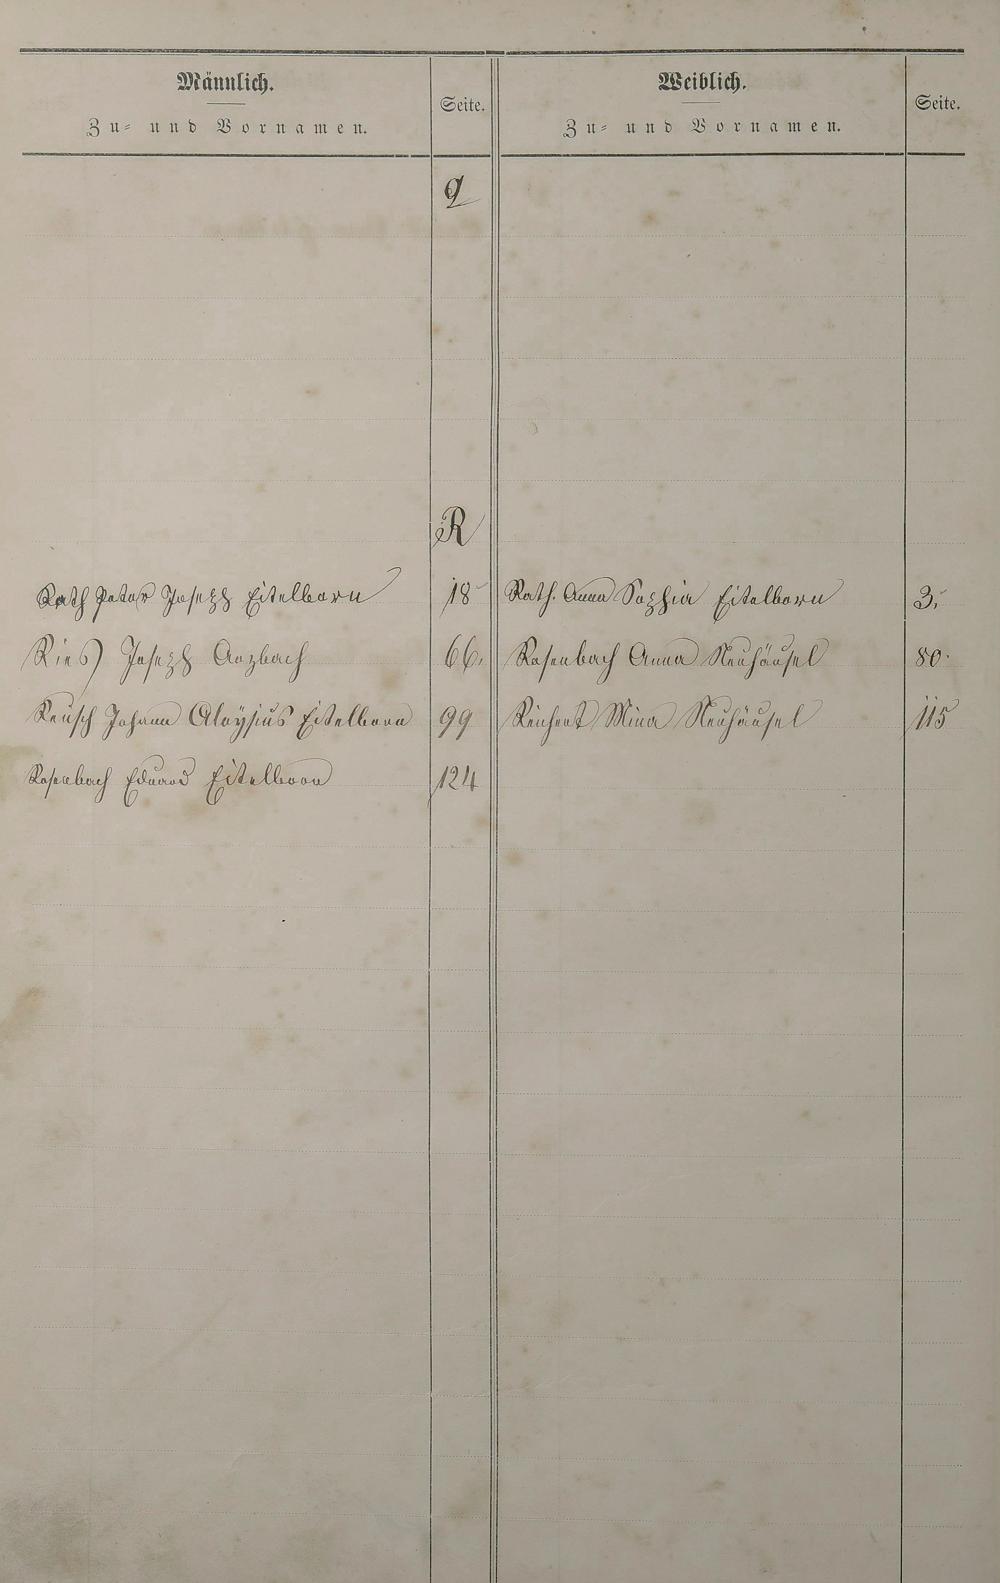 Männlich.
Zu= und Vornamen.
Seite.
Weiblich.
Zu= und Vornamen.
Seite.
Q
R
Rath Peter Joseph Eitelborn 18
Rath. Anna Sophia Eitelborn 3.
Ries Joseph Arzbach 66.
Rosenbach Anna Neuhäusel 80.
Reusch Johann Aloysius Eitelborn 99
Reichert Mina Neuhäusel 115
Rosenbach Eduard Eitelborn 124